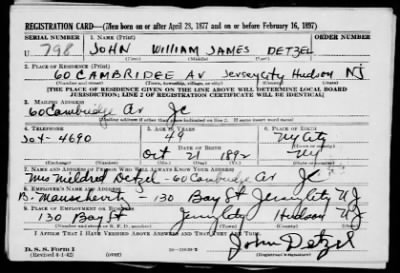 REGISTRATION CARD—(Men born on or after April 28, 1877 and on or before February 16, 1897)
SERIAL NUMBER 1. NAME (Print) ORDER NUMBER
U 798 JOHN WILLIAM JAMES DETZEL
(First) (Middle) (Last)
2. PLACE OF RESIDENCE (Print)
60 CAMBRIDEE AV Jersey City Hudson NJ
(Number and street) (Town, township, village, or city) (County) (State)
[THE PLACE OF RESIDENCE GIVEN ON THE LINE ABOVE WILL DETERMINE LOCAL BOARD
JURISDICTION; LINE 2 OF REGISTRATION CERTIFICATE WILL BE IDENTICAL]
3. MAILING ADDRESS
60 Cambridge Av JC
[Mailing address if other than place indicated on line 2. If same insert word same]
4. TELEPHONE 5. AGE IN YEARS 6. PLACE OF BIRTH
4690 49 NY City
DATE OF BIRTH (Town or county)
Oct 21 1892 NY
(Exchange) (Number) (Mo.) (Day) (Yr.) (State or country)
7. NAME AND ADDRESS OF PERSON WHO WILL ALWAYS KNOW YOUR ADDRESS
Mrs Mildred Detzel - 60 Cambridge Av JC
8. EMPLOYER'S NAME AND ADDRESS
B. Manischevitz - 130 Bay St Jersey City NJ
9. PLACE OF EMPLOYMENT OR BUSINESS
130 Bay St Jersey City Hudson NJ
(Number and street or R. F. D. number) (Town) (County) (State)
I AFFIRM THAT I HAVE VERIFIED ABOVE ANSWERS AND THAT THEY ARE TRUE.
D. S. S. Form 1
(Revised 4-1-42) (over) John Detzel